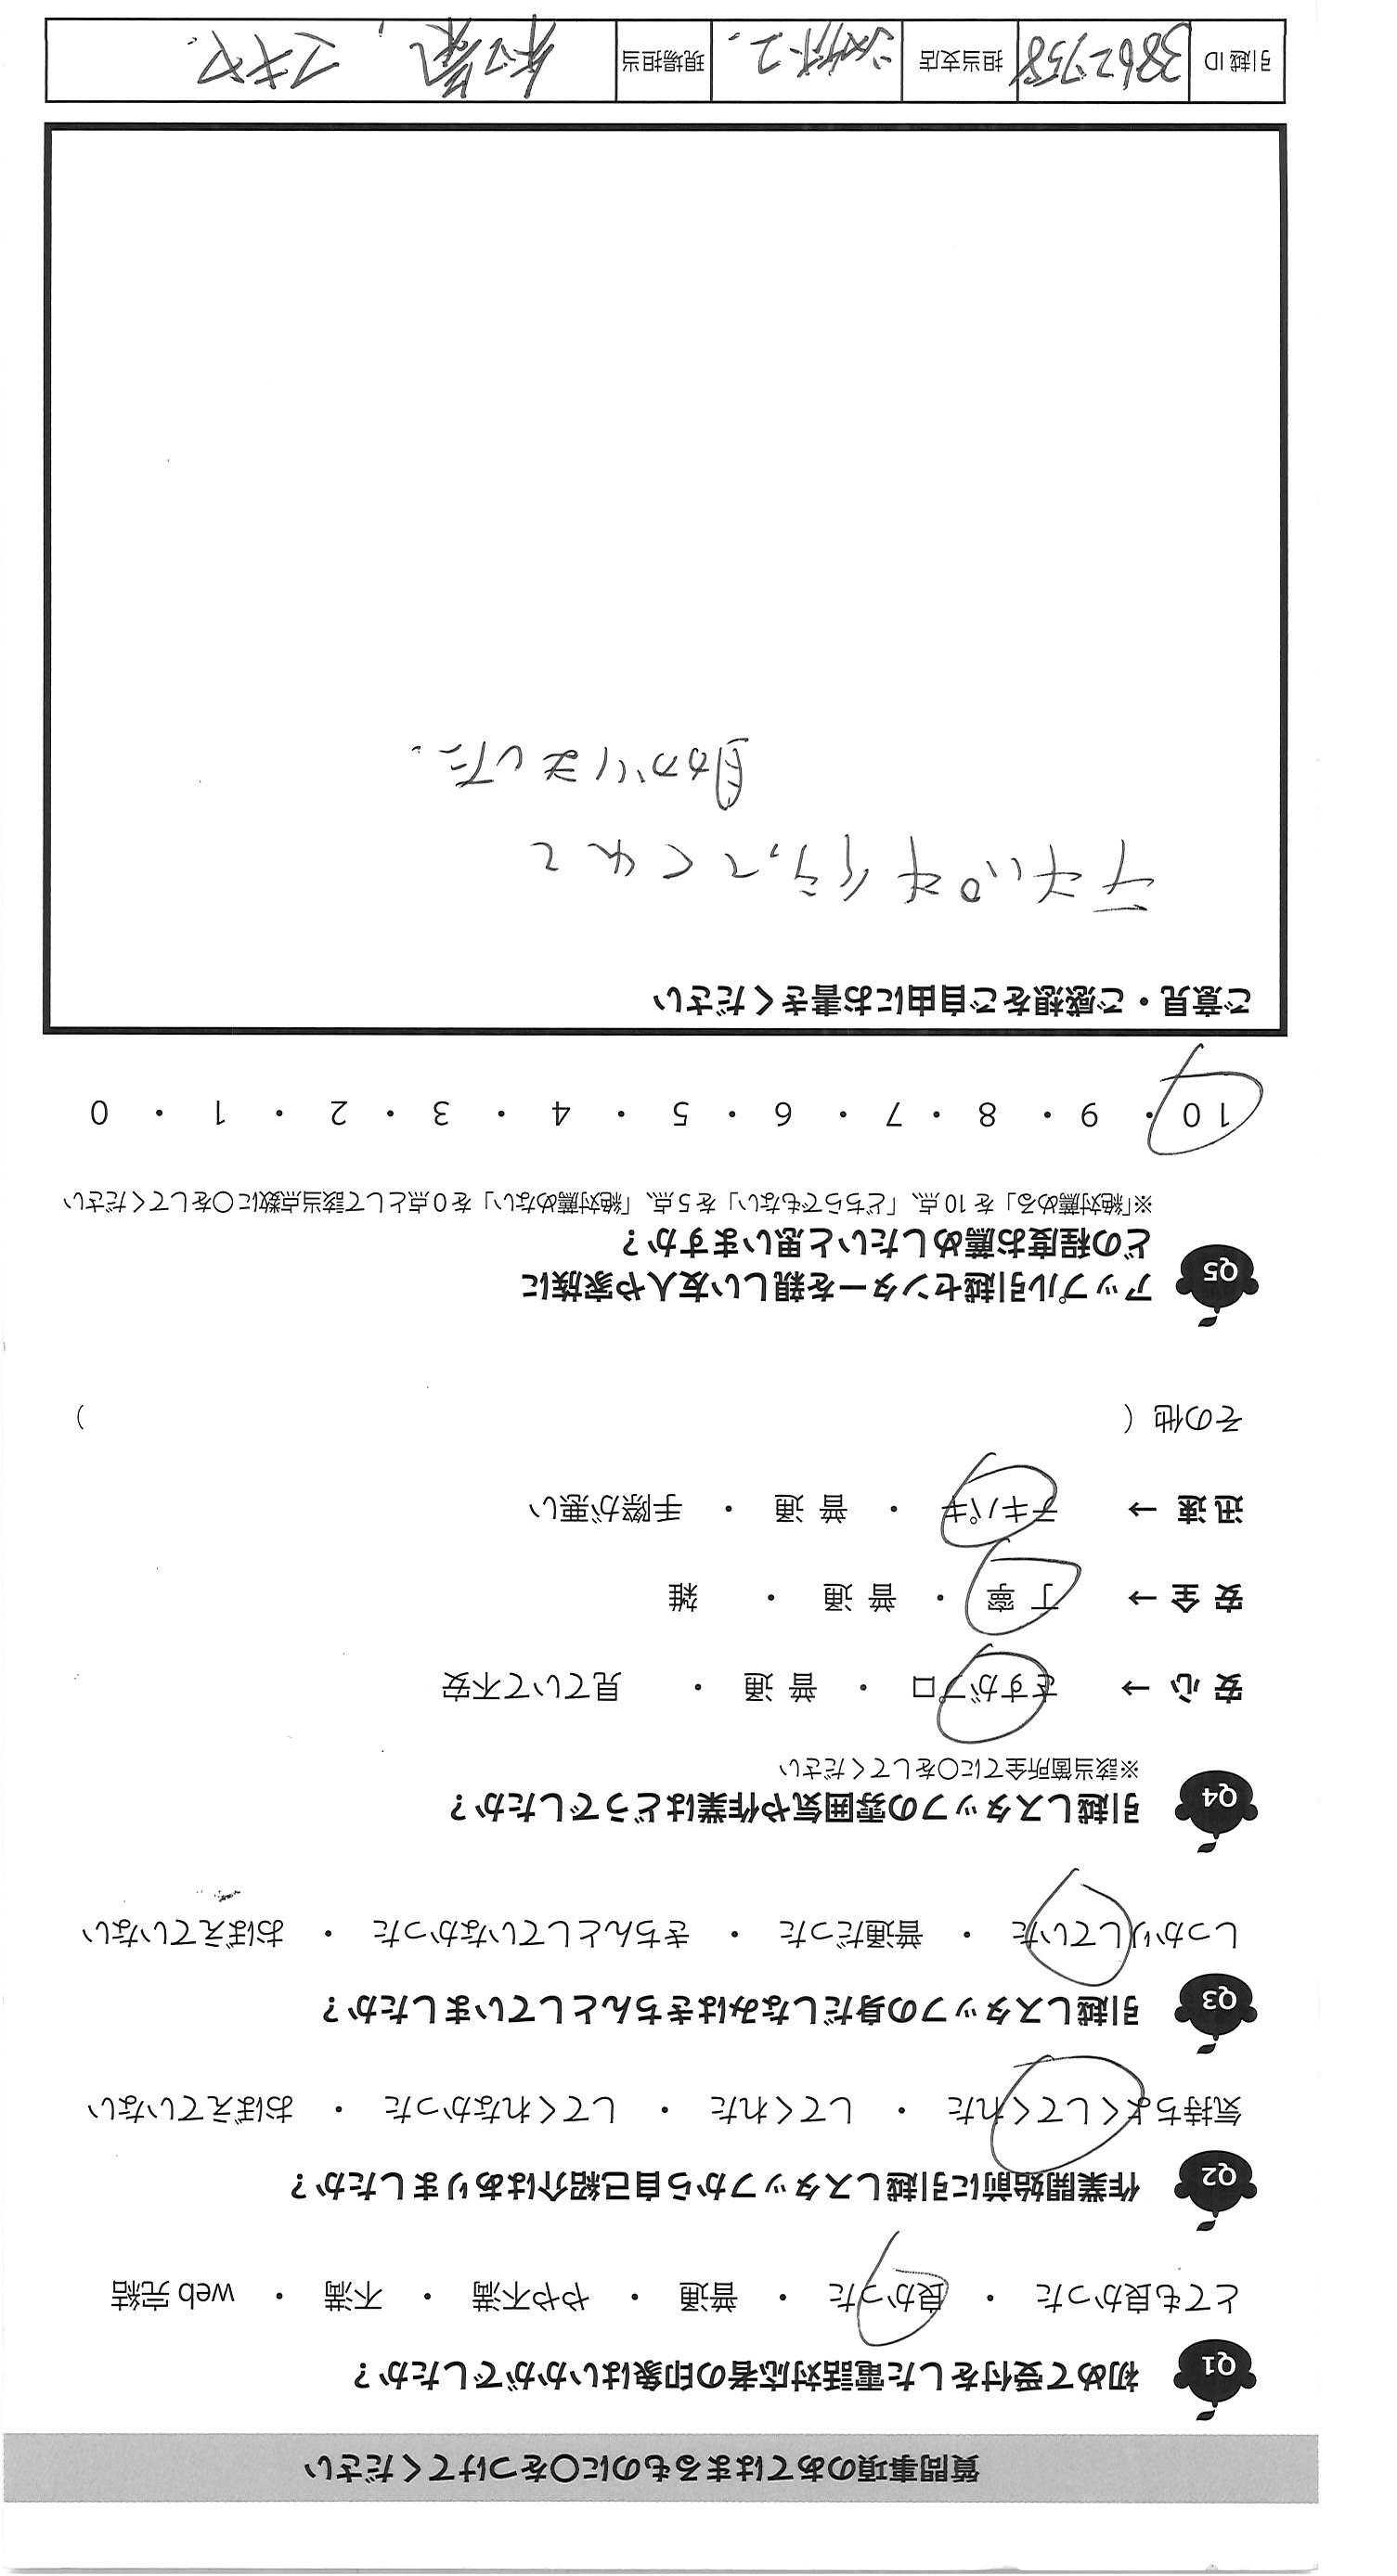 質問事項のあてはまるものに〇をつけてください
Q1 初めて受付をした電話対応者の印象はいかがでしたか？
とても良かった ・ 良かった ・ 普通 ・ やや不満 ・ 不満 ・ web 完結
Q2 作業開始前に引越しスタッフから自己紹介はありましたか？
気持ちよくしてくれた ・ してくれた ・ してくれなかった ・ おぼえていない
Q3 引越しスタッフの身だしなみはきちんとしていましたか？
しっかりしていた ・ 普通だった ・ きちんとしていなかった ・ おぼえていない
Q4 引越しスタッフの雰囲気や作業はどうでしたか？
※該当箇所全てに〇をしてください
安 心 → さすがプロ ・ 普 通 ・ 見ていて不安
安 全 → 丁 寧 ・ 普 通 ・ 雑
迅 速 → テキパキ ・ 普 通 ・ 手際が悪い
その他（ ）
Q5 アップル引越センターを親しい友人や家族に
どの程度お薦めしたいと思いますか？
※「絶対薦める」を 10 点、「どちらでもない」を 5 点、「絶対薦めない」を 0 点として該当点数に〇をしてください
10 ・ 9 ・ 8 ・ 7 ・ 6 ・ 5 ・ 4 ・ 3 ・ 2 ・ 1 ・ 0
ご意見・ご感想をご自由にお書きください
テキパキ行ってくれて
助かりました.
引越 ID 3862758 担当支店 現場担当